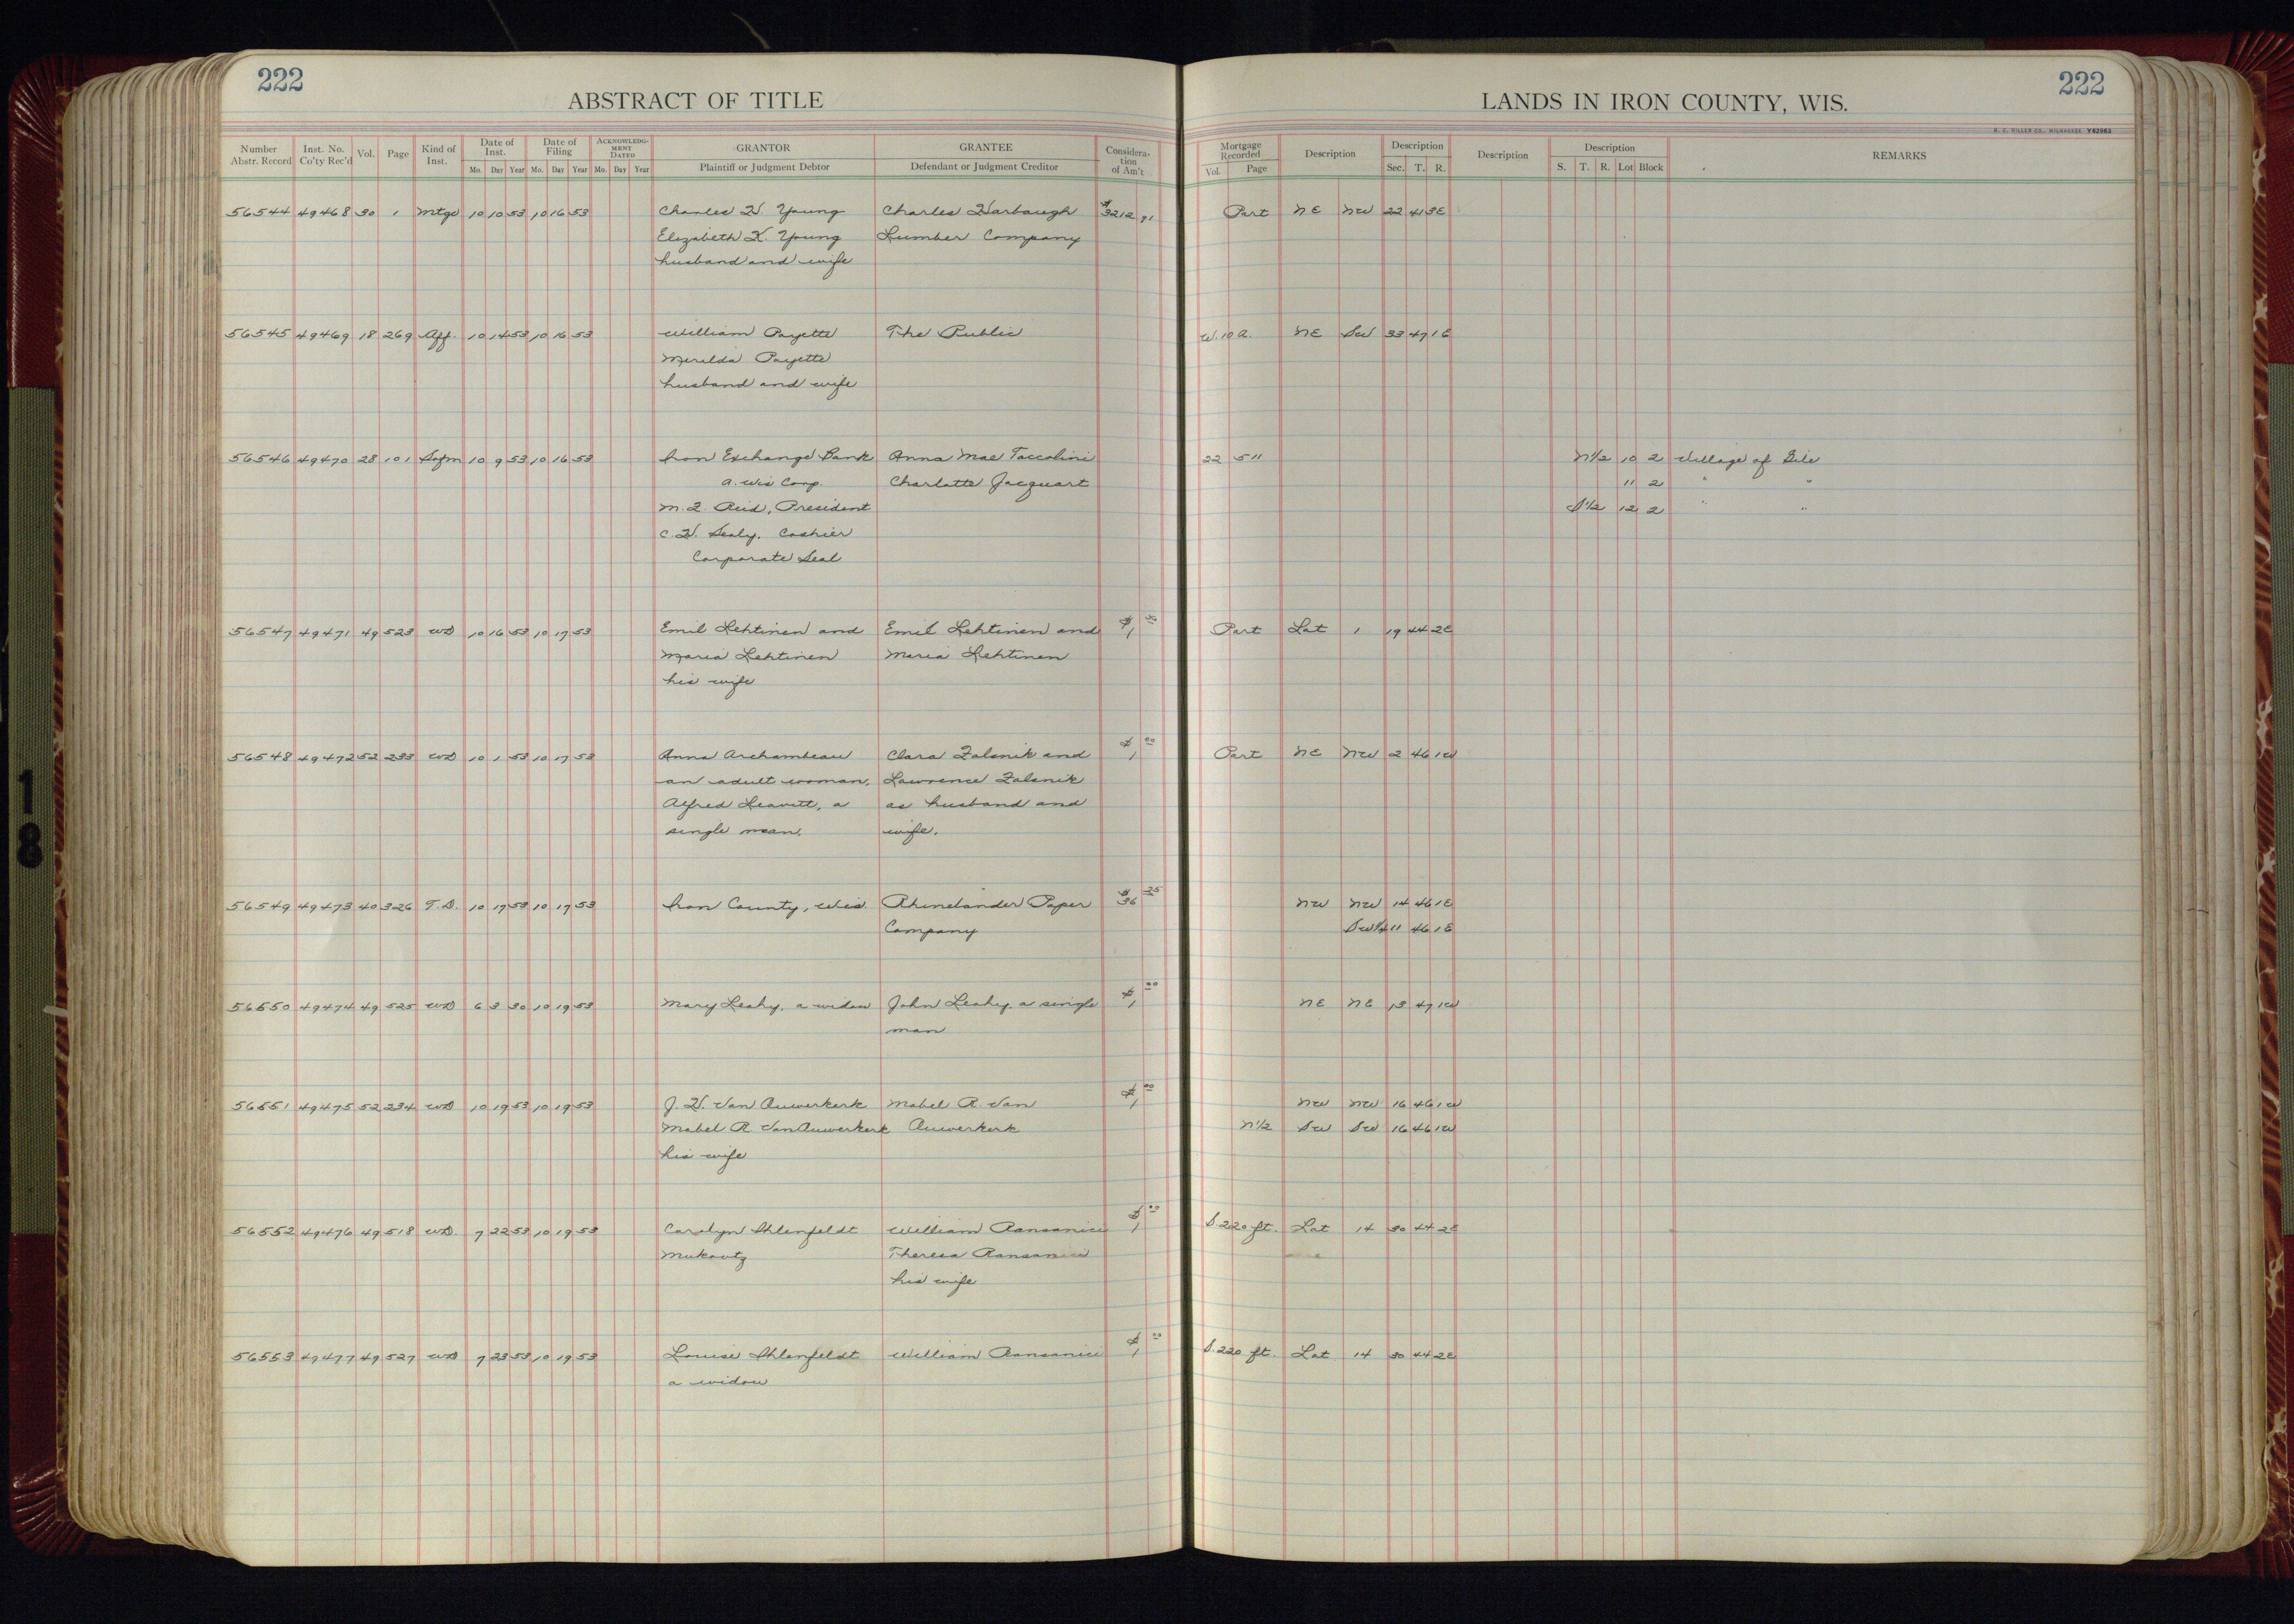 222
ABSTRACT OF TITLE
LANDS IN IRON COUNTY, WIS.
222
H. C. MILLER CO., MILWAUKEE Y62963
Number Abstr. Record Inst. No. Co'ty Rec'd Vol. Page Kind of Inst. Date of Inst. Mo. Day Year Date of Filing Mo. Day Year ACKNOWLEDG-MENT DATED Mo. Day Year GRANTOR Plaintiff or Judgment Debtor GRANTEE Defendant or Judgment Creditor Considera-tion of Am't Mortgage Recorded Vol. Page Description Description Sec. T. R. Description Description S. T. R. Lot Block REMARKS
56544 49468 30 1 Mtge 10 10 53 10 16 53 Charles W. Young Charles Harbaugh $3212 91 Part NE NW 22 41 3E
Elizabeth K. Young Lumber Company
husband and wife
56545 49469 18 269 Aff. 10 14 53 10 16 53 William Payette The Public W. 10 a. NE SW 33 47 1E
Merilda Payette
husband and wife
56546 49470 28 101 Safm 10 9 53 10 16 53 Iron Exchange Bank Anna Mae Toccolini 22 511 N1/2 10 2 Village of Gile
a. Wis Corp. Charlotte Jacquart 11 2 " "
M. J. Reid, President S1/2 12 2 " "
C. W. Sealy, Cashier
Corporate Seal
56547 49471 49 523 WD 10 16 53 10 17 53 Emil Lehtinen and Emil Lehtinen and $1 00 Part Lot 1 19 44 2E
Maria Lehtinen Maria Lehtinen
his wife
56548 49472 52 233 WD 10 1 53 10 17 53 Anna Archambeau Clara Zalsnik and $1 00 Part NE NW 2 46 1W
an adult woman, Lawrence Zalsnik
Alfred Leavitt, a as husband and
single man. wife.
56549 49473 40 326 T.D. 10 17 53 10 17 53 Iron County, Wis. Rhinelander Paper $36 25 NW NW 14 46 1E
Company SW1/4 11 46 1E
56550 49474 49 525 WD 6 3 30 10 19 53 Mary Leahy, a widow John Leahy, a single $1 00 NE NE 13 47 1W
man
56551 49475 52 234 WD 10 19 53 10 19 53 J. W. Van Auwerkerk Mabel R. Van $1 00 NW NW 16 46 1W
Mabel R. Van Auwerkerk Auwerkerk N1/2 SW SW 16 46 1W
his wife
56552 49476 49 518 WD. 7 22 53 10 19 53 Carolyn Ihlenfeldt William Ransanici $1 00 S. 220 ft. Lot 14 30 44 2E
Mukavitz Theresa Ransanici
his wife
56553 49477 49 527 WD 7 23 53 10 19 53 Louise Ihlenfeldt William Ransanici $1 00 S. 220 ft. Lot 14 30 44 2E
a widow
18